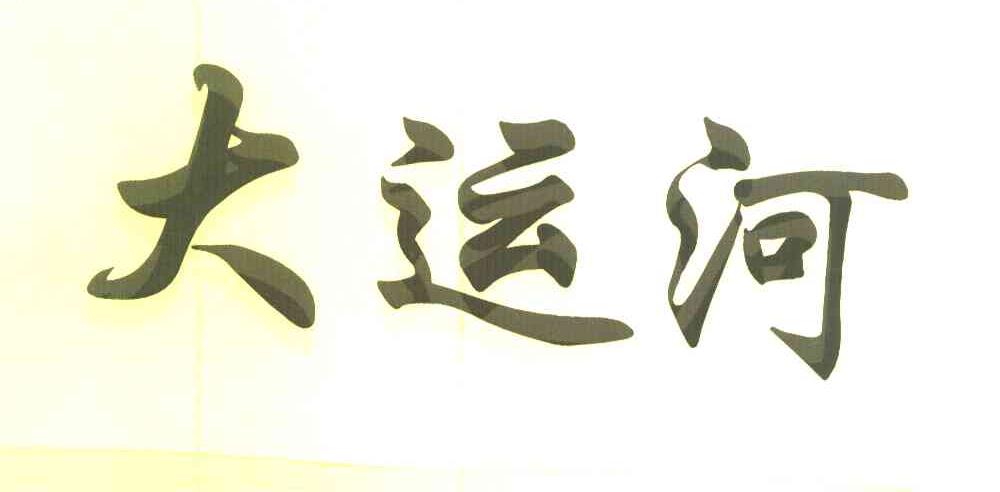 大运河